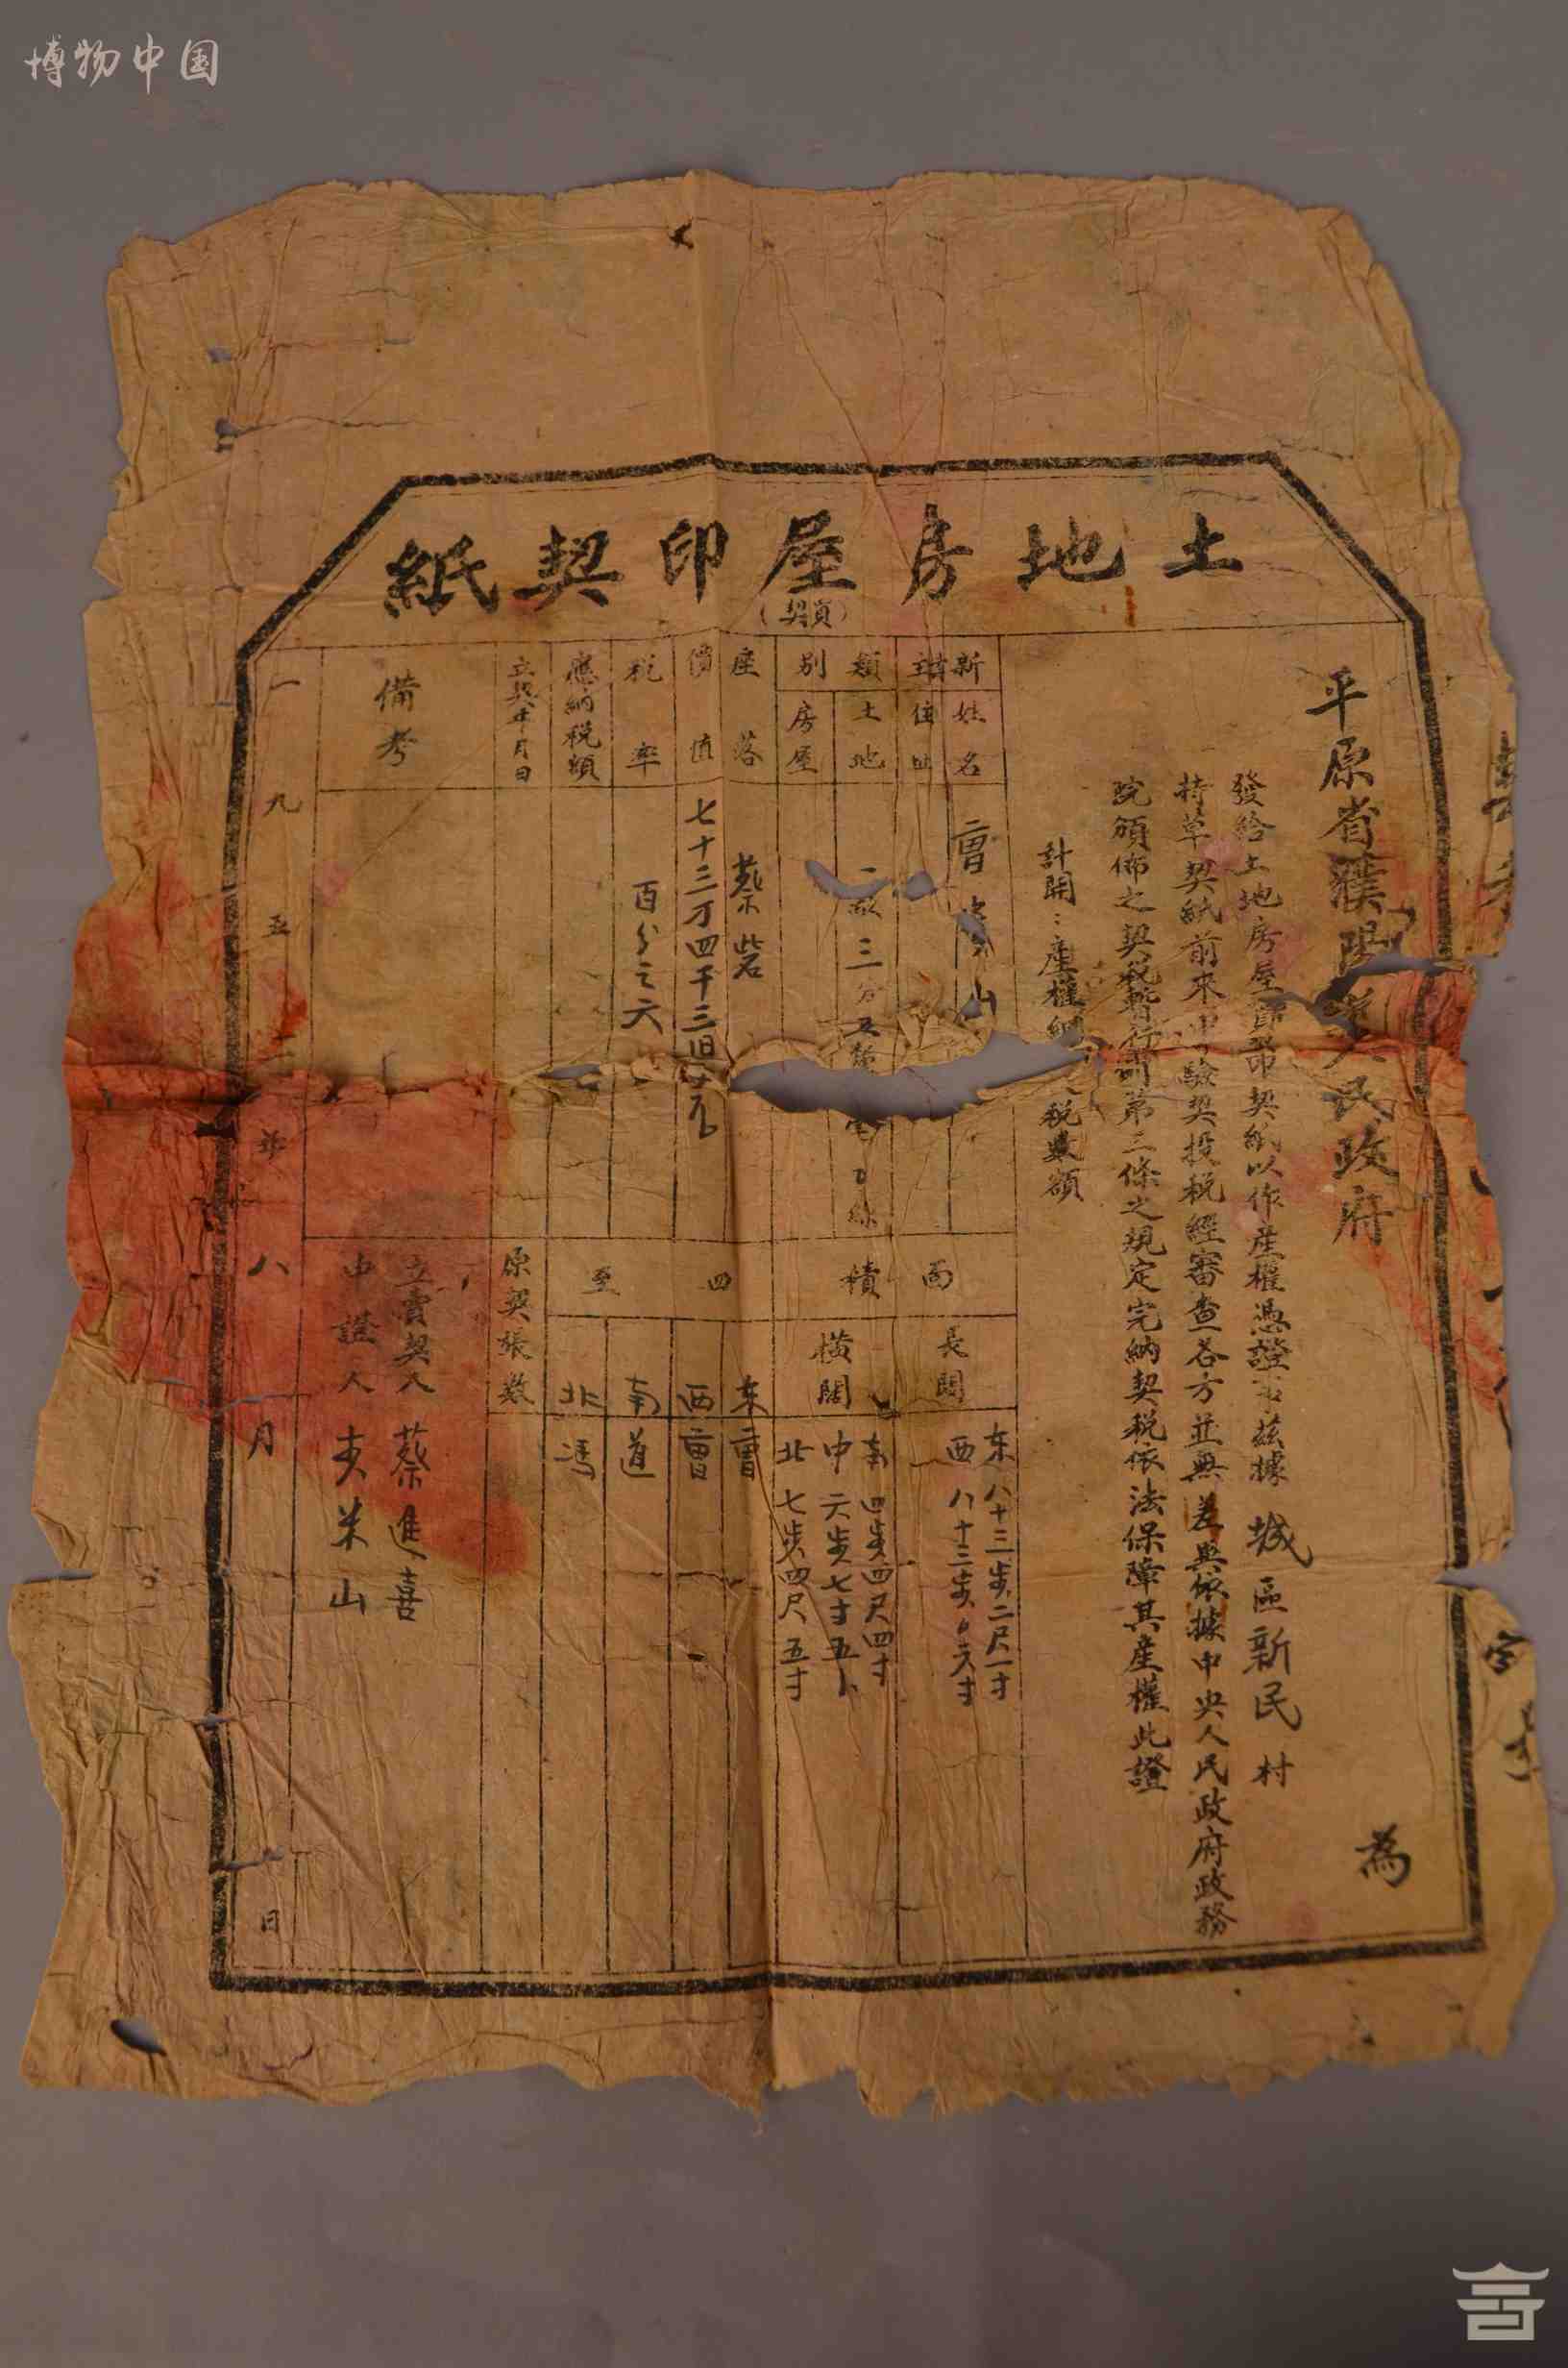 博物中国
土地房屋印契紙
(買契)
平原省濮陽人民政府
為
發給土地房屋印契紙以作產權憑證事茲據城區新民村
持草契紙前來申請驗契投稅經審查各方並無差異依據中央人民政府政務
院頒佈之契稅暫行第三條之規定完納契稅依法保障其產權此證
計開：產權稅數額
新
姓名
曹山
住址
類別
土地
三分五
房屋
座落
蔡砦
價值
七十三万四千三百
稅率
百分之六
應納稅額
立契年月日
備考
面積
長闊
东八十三步二尺一寸
西八十三步0六寸
橫闊
南四步四尺四寸
中六步七寸五卜
北七步四尺五寸
四至
东曹
西曹
南道
北馮
原契張數
立賣契人蔡進喜
中證人米山
一九五二年八月日